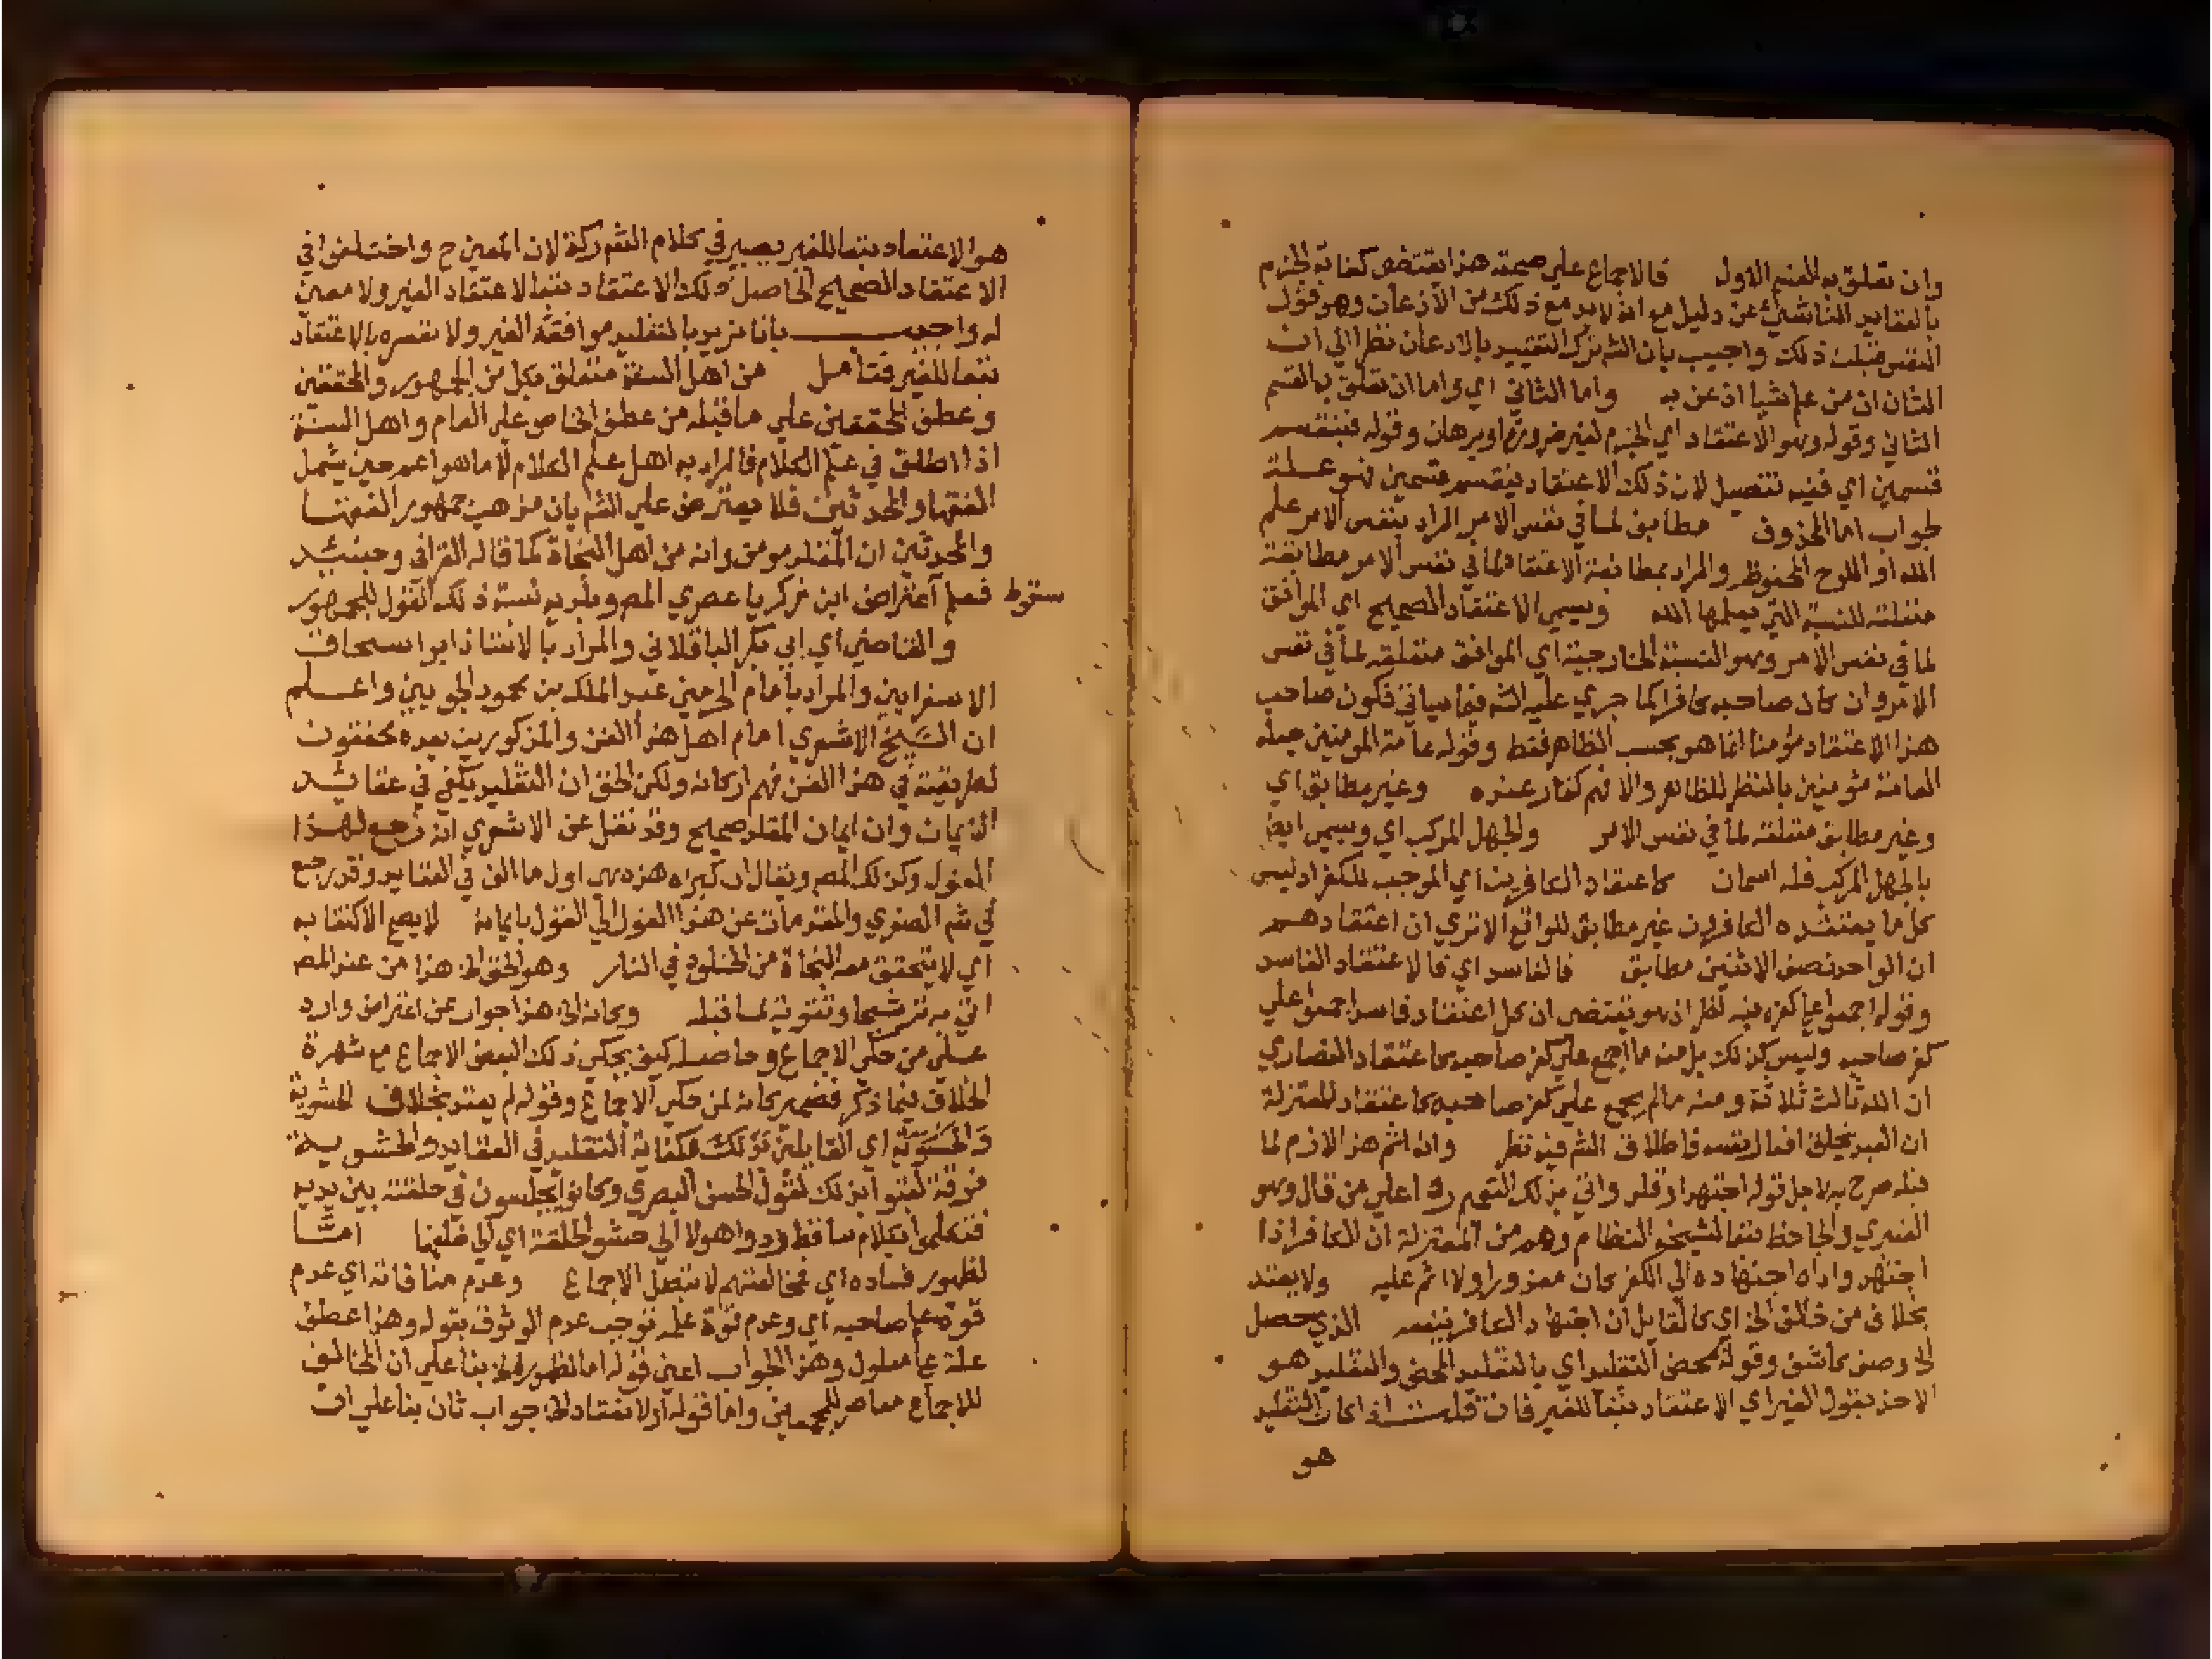 وان تعلق به القسم الاول فالاجماع علي صحته هذا يقتضي كفاية الجزم
بالعقايد الناشئ عن دليل مع انه لابد مع ذلك من الاذعان وهو قول
النفس قبلت ذلك واجيب بان الشه ترك التقييد بالاذعان نظرا الي ان
الشان ان من علم شيا اذعن به واما الثاني اي واما ان تعلق به القسم
الثاني وقوله وهو الاعتقاد اي الجزم لغير ضرورة او برهان وقوله فينقسم
قسمين اي ففيه تفصيل لان ذلك الاعتقاد ينقسم قسمين فهو علة
لجواب اما المحذوف مطابق لما في نفس الامر المراد بنفس الامر علم
الله او اللوح المحفوظ والمراد بمطابقة الاعتقاد لما في نفس الامر مطابقة
متعلقه للنسبة التي يعلمها الله ويسمي الاعتقاد الصحيح اي الموافق
لما في نفس الامر وهو النسبة الخارجية اي الموافق متعلقه لما في نفس
الامر وان كان صاحبه كافرا كما جري عليه الشه فيما سياتي فكون صاحب
هذا الاعتقاد مؤمنا انما هو بحسب الظاهر فقط وقوله عامة المومنين جعله
العامة مؤمنين بالنظر للظاهر والا فهم كفار عنده وغير مطابق اي
وغير مطابق متعلقه لما في نفس الامر والجهل المركب اي ويسمي ايض
بالجهل المركب فله اسمان كاعتقاد الكافرين اي الموجب للكفر اذ ليس
كل ما يعتقده الكافرون غير مطابق للواقع الا تري ان اعتقادهم
ان الواحد نصف الاثنين مطابق فالفاسد اي فالاعتقاد الفاسد
وقوله اجمعوا علي كفره فيه نظر اذ هو يقتضي ان كل اعتقاد فاسد اجمعوا علي
كفر صاحبه وليس كذلك بل منه ما اجمع علي كفر صاحبه كاعتقاد النصاري
ان الله ثالث ثلاثة ومنه ما لم يجمع علي كفر صاحبه كاعتقاد المعتزلة
ان العبد يخلق افعال نفسه فاطلاق الشه فيه نظر وانه اثم هذا لازم لما
قبله صرح به لاجل قوله اجتهد او قلد واتي بذلك التعميم ردا علي من قال وهو
العنبري والجاحظ تبعا لشيخه النظام وهم من المعتزلة ان الكافر اذا
اجتهد واداه اجتهاده الي الكفر كان معذورا ولا اثم عليه ولا يعتد
بخلاف من خالف الخ اي كالقايل ان اجتهاد الكافر ينفعه الذي حصل
الخ وصف كاشف وقوله محض التقليد اي بالتقليد المحض والتقليد هو
الاخذ بقول الغير اي الاعتقاد تبعا للغير فان قلت اذا كان التقليد
هو
هو الاعتقاد تبعا للغير يصير في كلام الشه ركة لان المعني ح واختلفوا في
الاعتقاد الصحيح الحاصل ذلك الاعتقاد تبعا لاعتقاد الغير ولا معني
له واجيب بانا نريد بالتقليد موافقة الغير ولا نفسره بالاعتقاد
تبعا للغير فتامل من اهل السنة متعلق بكل من الجمهور والمحققين
وعطف المحققين علي ما قبله من عطف الخاص علي العام واهل السنة
اذا اطلق في علم الكلام فالمراد به اهل علم الكلام لا ما هو اعم حين يشمل
الفقها والمحدثين فلا يعترض علي الشه بان مذهب جمهور الفقها
والمحدثين ان المقلد مومن وانه من اهل النجاة كما قاله القرافي وحينئذ
سقوط فعلم اعتراض ابن ذكريا عصري المصو وبلديه نسبة ذلك القول للجمهور
والقاضي اي ابي بكر الباقلاني والمراد بالاستاذ ابو اسحاق
الاسفرايني والمراد بامام الحرمين عبد الملك بن محمود الجويني واعلم
ان الشيخ الاشعري امام اهل هذا الفن والمذكورين بعده محققون
لطريقته في هذا الفن فهم اركانه ولكن الحق ان التقليد يكفي في عقائد
الايمان وان ايمان المقلد صحيح وقد نقل عن الاشعري انه رجع لهذا
القول وكذلك المص ويقال ان كبراه هذه هي اول ما الف في العقايد وقد رجع
في شم الصغري والمقدمات عن هذا القول الي القول بايمانه لا يصح الاكتفا به
اي لا يتحقق معه النجاة من الخلود في النار وهو الحق الخ هذا من عند المص
اتي به ترشيحا وتقوية لما قبله وكانه الخ هذا جواب عن اعتراض وارد
علي من حكي الاجماع وحاصله كيف يحكي ذلك البعض الاجماع مع شهرة
الخلاف فيما ذكر فضمير كانه لمن حكي الاجماع وقوله لم يعتد بخلاف الحشوية
والحشوية اي القايلين بذلك بكفاية التقليد في العقايد والحشوية
فرقة لقبوا بذلك لقول الحسن البصري وكانوا يجلسون في حلقته بين يديه
فتكلموا بكلام ساقط ردوا هولا الي حشو الحلقة اي الي خلفها اما
لظهور فساده اي مخالفتهم لا تبطل الاجماع وعدم منافاته اي عدم
قوة علم صاحبه اي وعدم قوة علمه توجب عدم الوثوق بقوله وهذا عطف
علة علي معلول وهذا الجواب اعني قوله اما لظهور الخ بنا علي ان المخالف
للاجماع معاصر للمجمعين واما قوله او لانعقاد الخ جواب ثان بنا علي ان